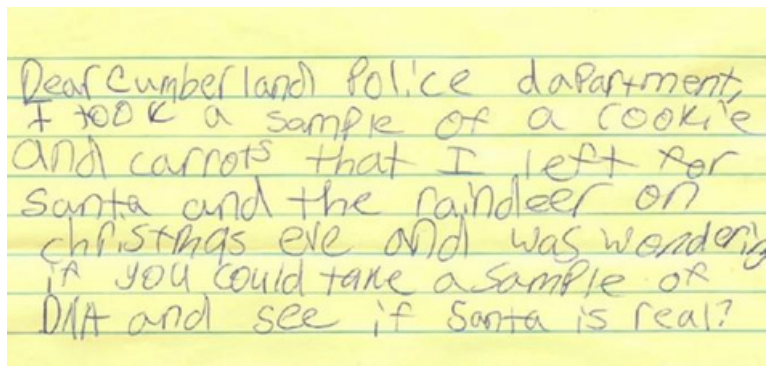 Dear Cumberland Police dapartment,
I took a sample of a cookie
and carrots that I left for
Santa and the raindeer on
christmas eve and was wondering
if you could take a sample of
DNA and see if Santa is real?